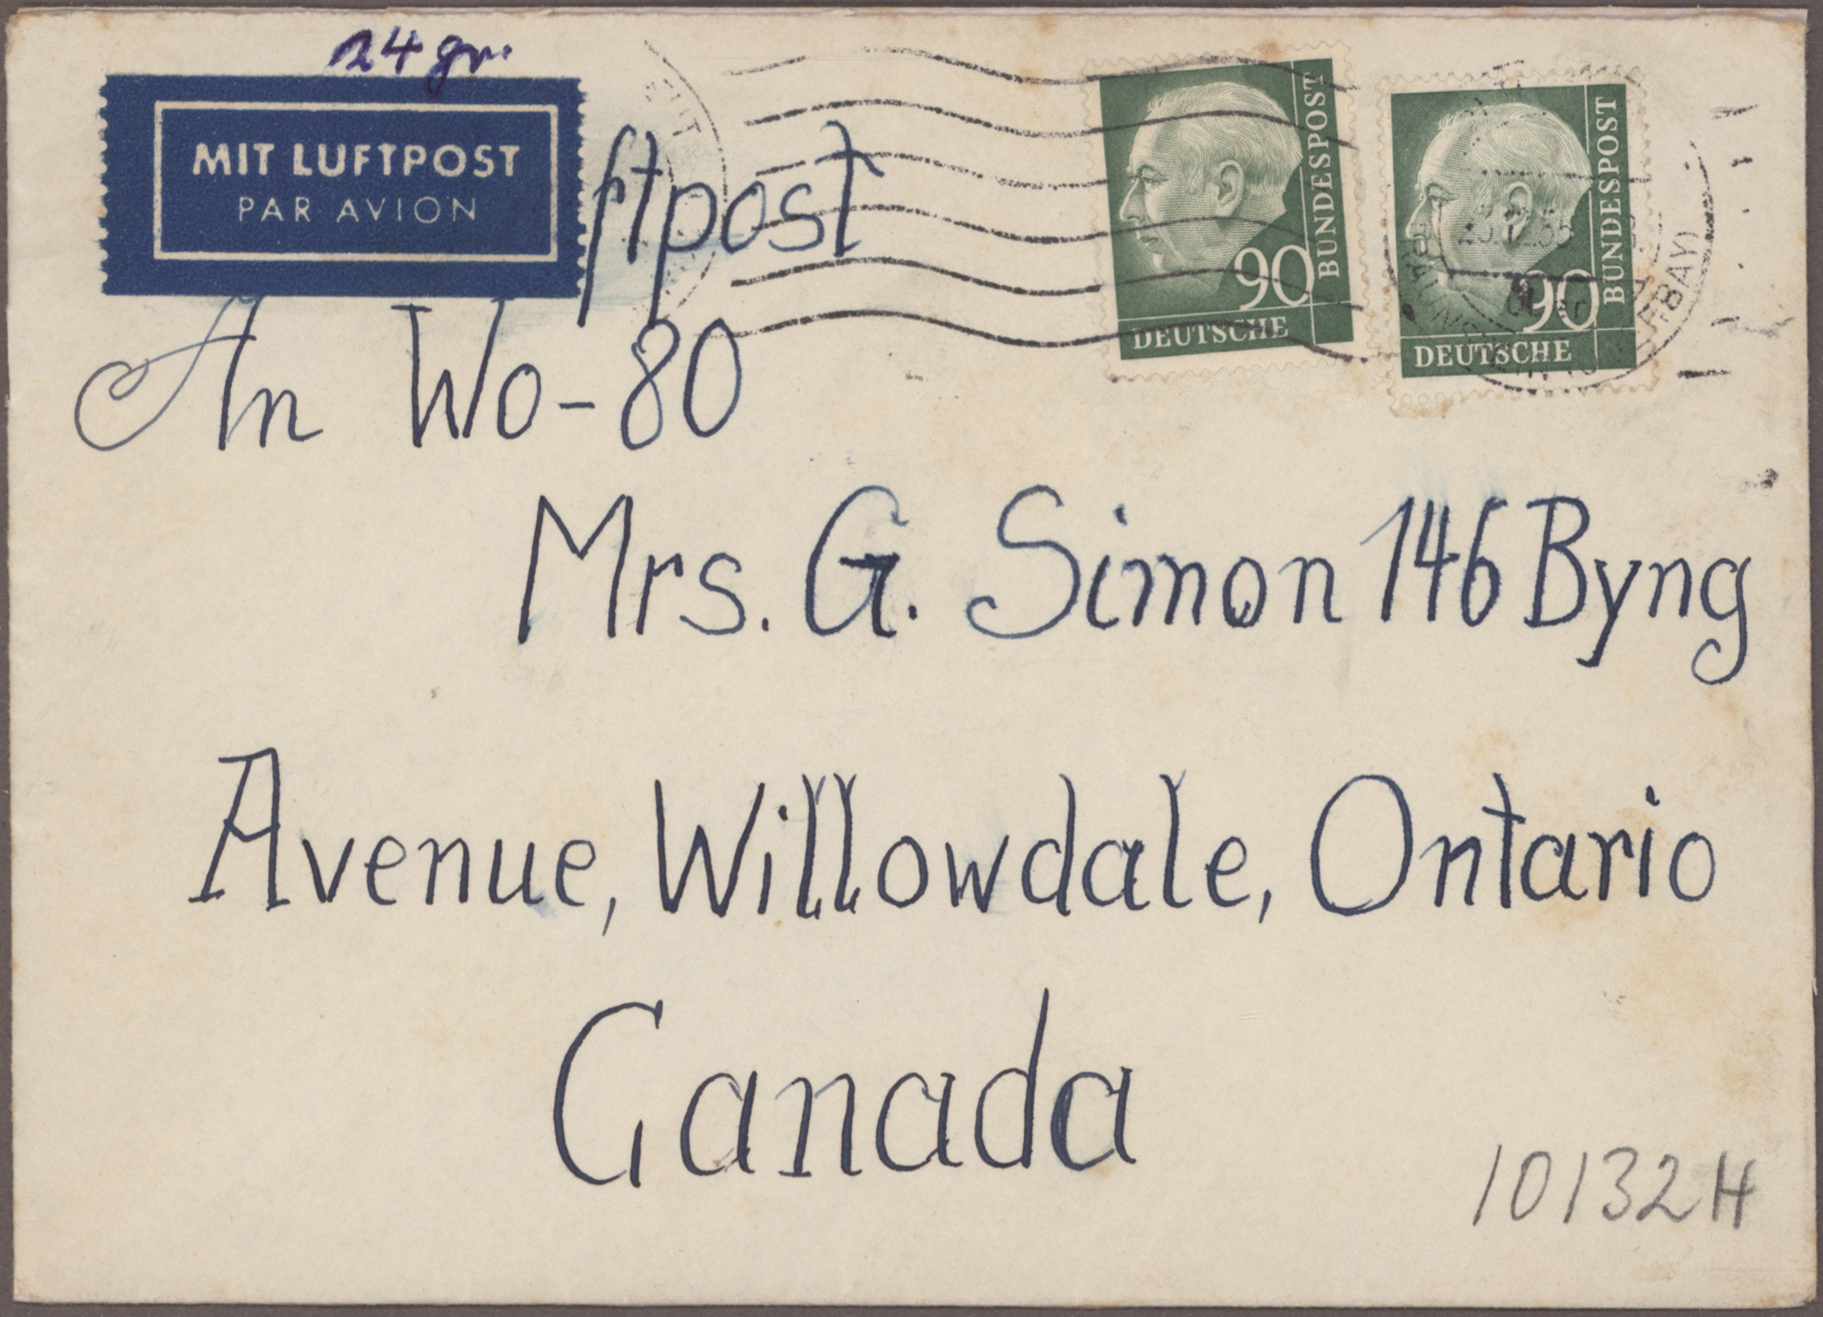 24 gr.
MIT LUFTPOST
PAR AVION
ftpost
90
BUNDESPOST
DEUTSCHE
90
BUNDESPOST
DEUTSCHE
An Wo-80
Mrs. G. Simon 146 Byng
Avenue, Willowdale, Ontario
Canada
10132H